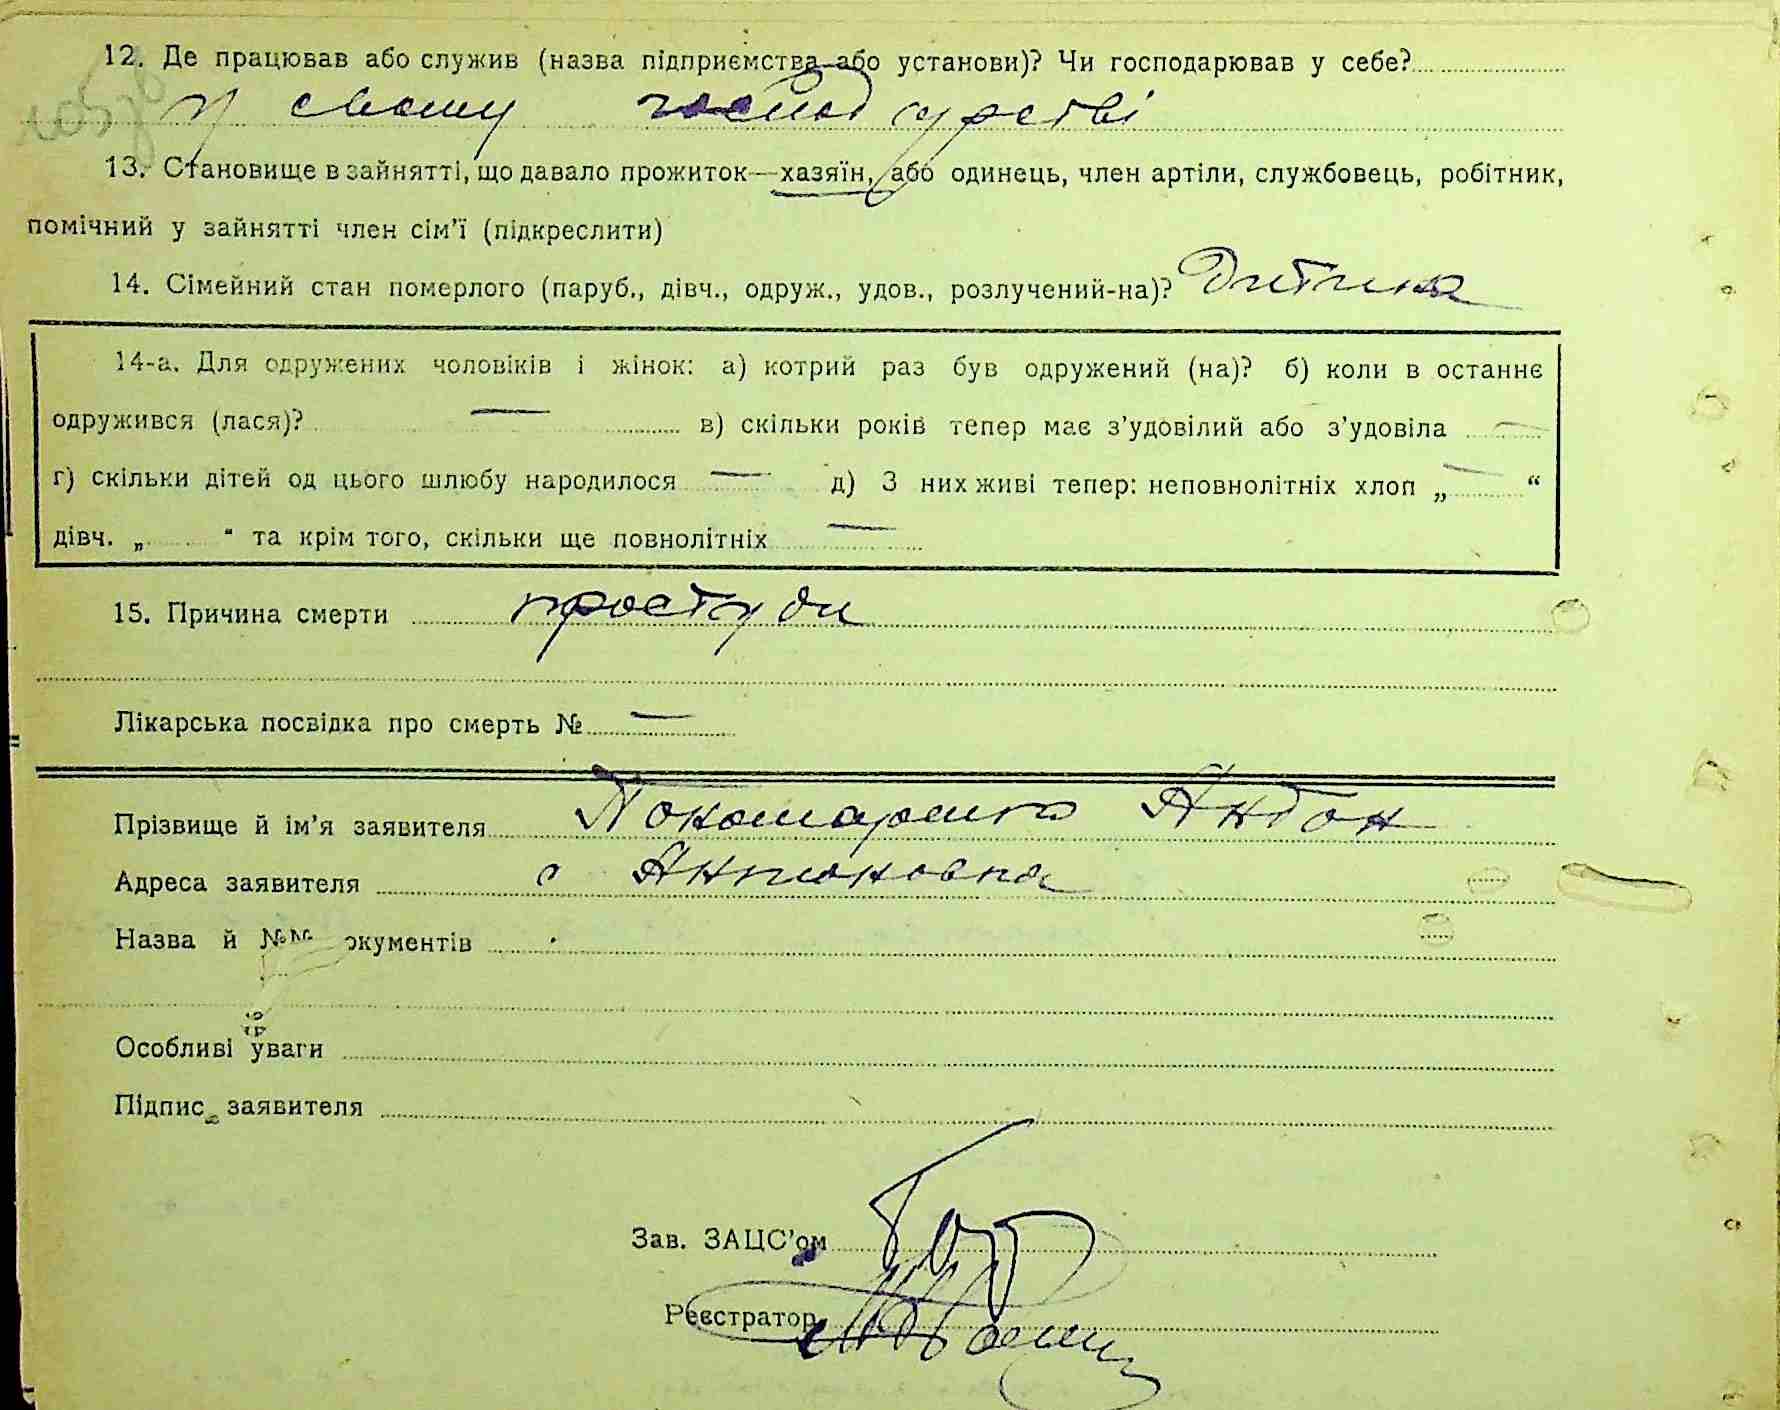 12. Де працював або служив (назва підприємства або установи)? Чи господарював у себе?
у своему господ урстві
13. Становище в зайнятті, що давало прожиток—хазяїн, або одинець, член артіли, службовець, робітник,
помічний у зайнятті член сім’ї (підкреслити)
14. Сімейний стан померлого (паруб., дівч., одруж., удов., розлучений-на)? Дитина
14-а. Для одружених чоловіків і жінок: а) котрий раз був одружений (на)? б) коли в останнє
одружився (лася)? — в) скільки років тепер має з’удовілий або з’удовіла —
г) скільки дітей од цього шлюбу народилося — д) З них живі тепер: неповнолітніх хлоп „ — “
дівч. „ “ та крім того, скільки ще повнолітніх —
15. Причина смерти простуди
Лікарська посвідка про смерть № —
Прізвище й ім’я заявителя Пономаренко Антон
Адреса заявителя с Антоновка
Назва й №№ окументів
Особливі уваги
Підпис заявителя
Зав. ЗАЦС’ом
Реєстратор